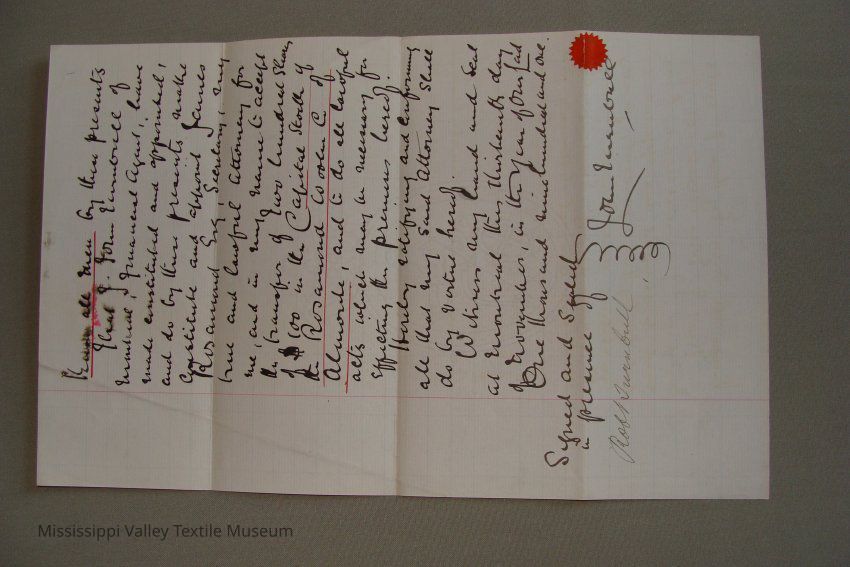 Know all men by these presents
that I, John Turnbull of
Montreal, Financial Agent, have
made constituted and appointed,
and do by these presents make
Constitute and appoint James
Rosamond Esq Secretary, my
true and lawful attorney for
me, and in my name to accept
the transfer of two hundred Shares
of $100 in the Capital Stock of
the Rosamond Woolen Co of
Almonte, and to do all lawful
acts which may be necessary for
effecting the premises hereof.
Hereby ratifying and confirming
all that my said Attorney shall
do by virtue hereof.
Witness my hand and seal
at Montreal this thirteenth day
of November, in the year of Our Lord
One thousand nine hundred and one.
Signed and Sealed
in presence of
John Turnbull
Robt Turnbull
Mississippi Valley Textile Museum